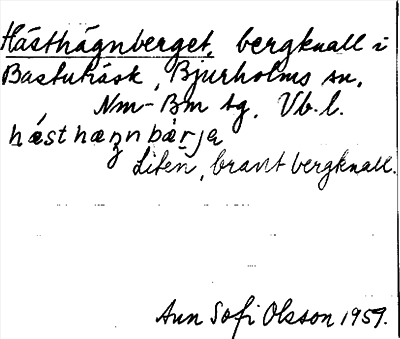 Hästhägnberget, bergknall i
Bastuträsk, Bjurholms sn,
Nm-Bm tg, Vb. l.
hæsthæŋnbärja
Liten, brant bergknall.
Ann Sofi Olsson 1959.